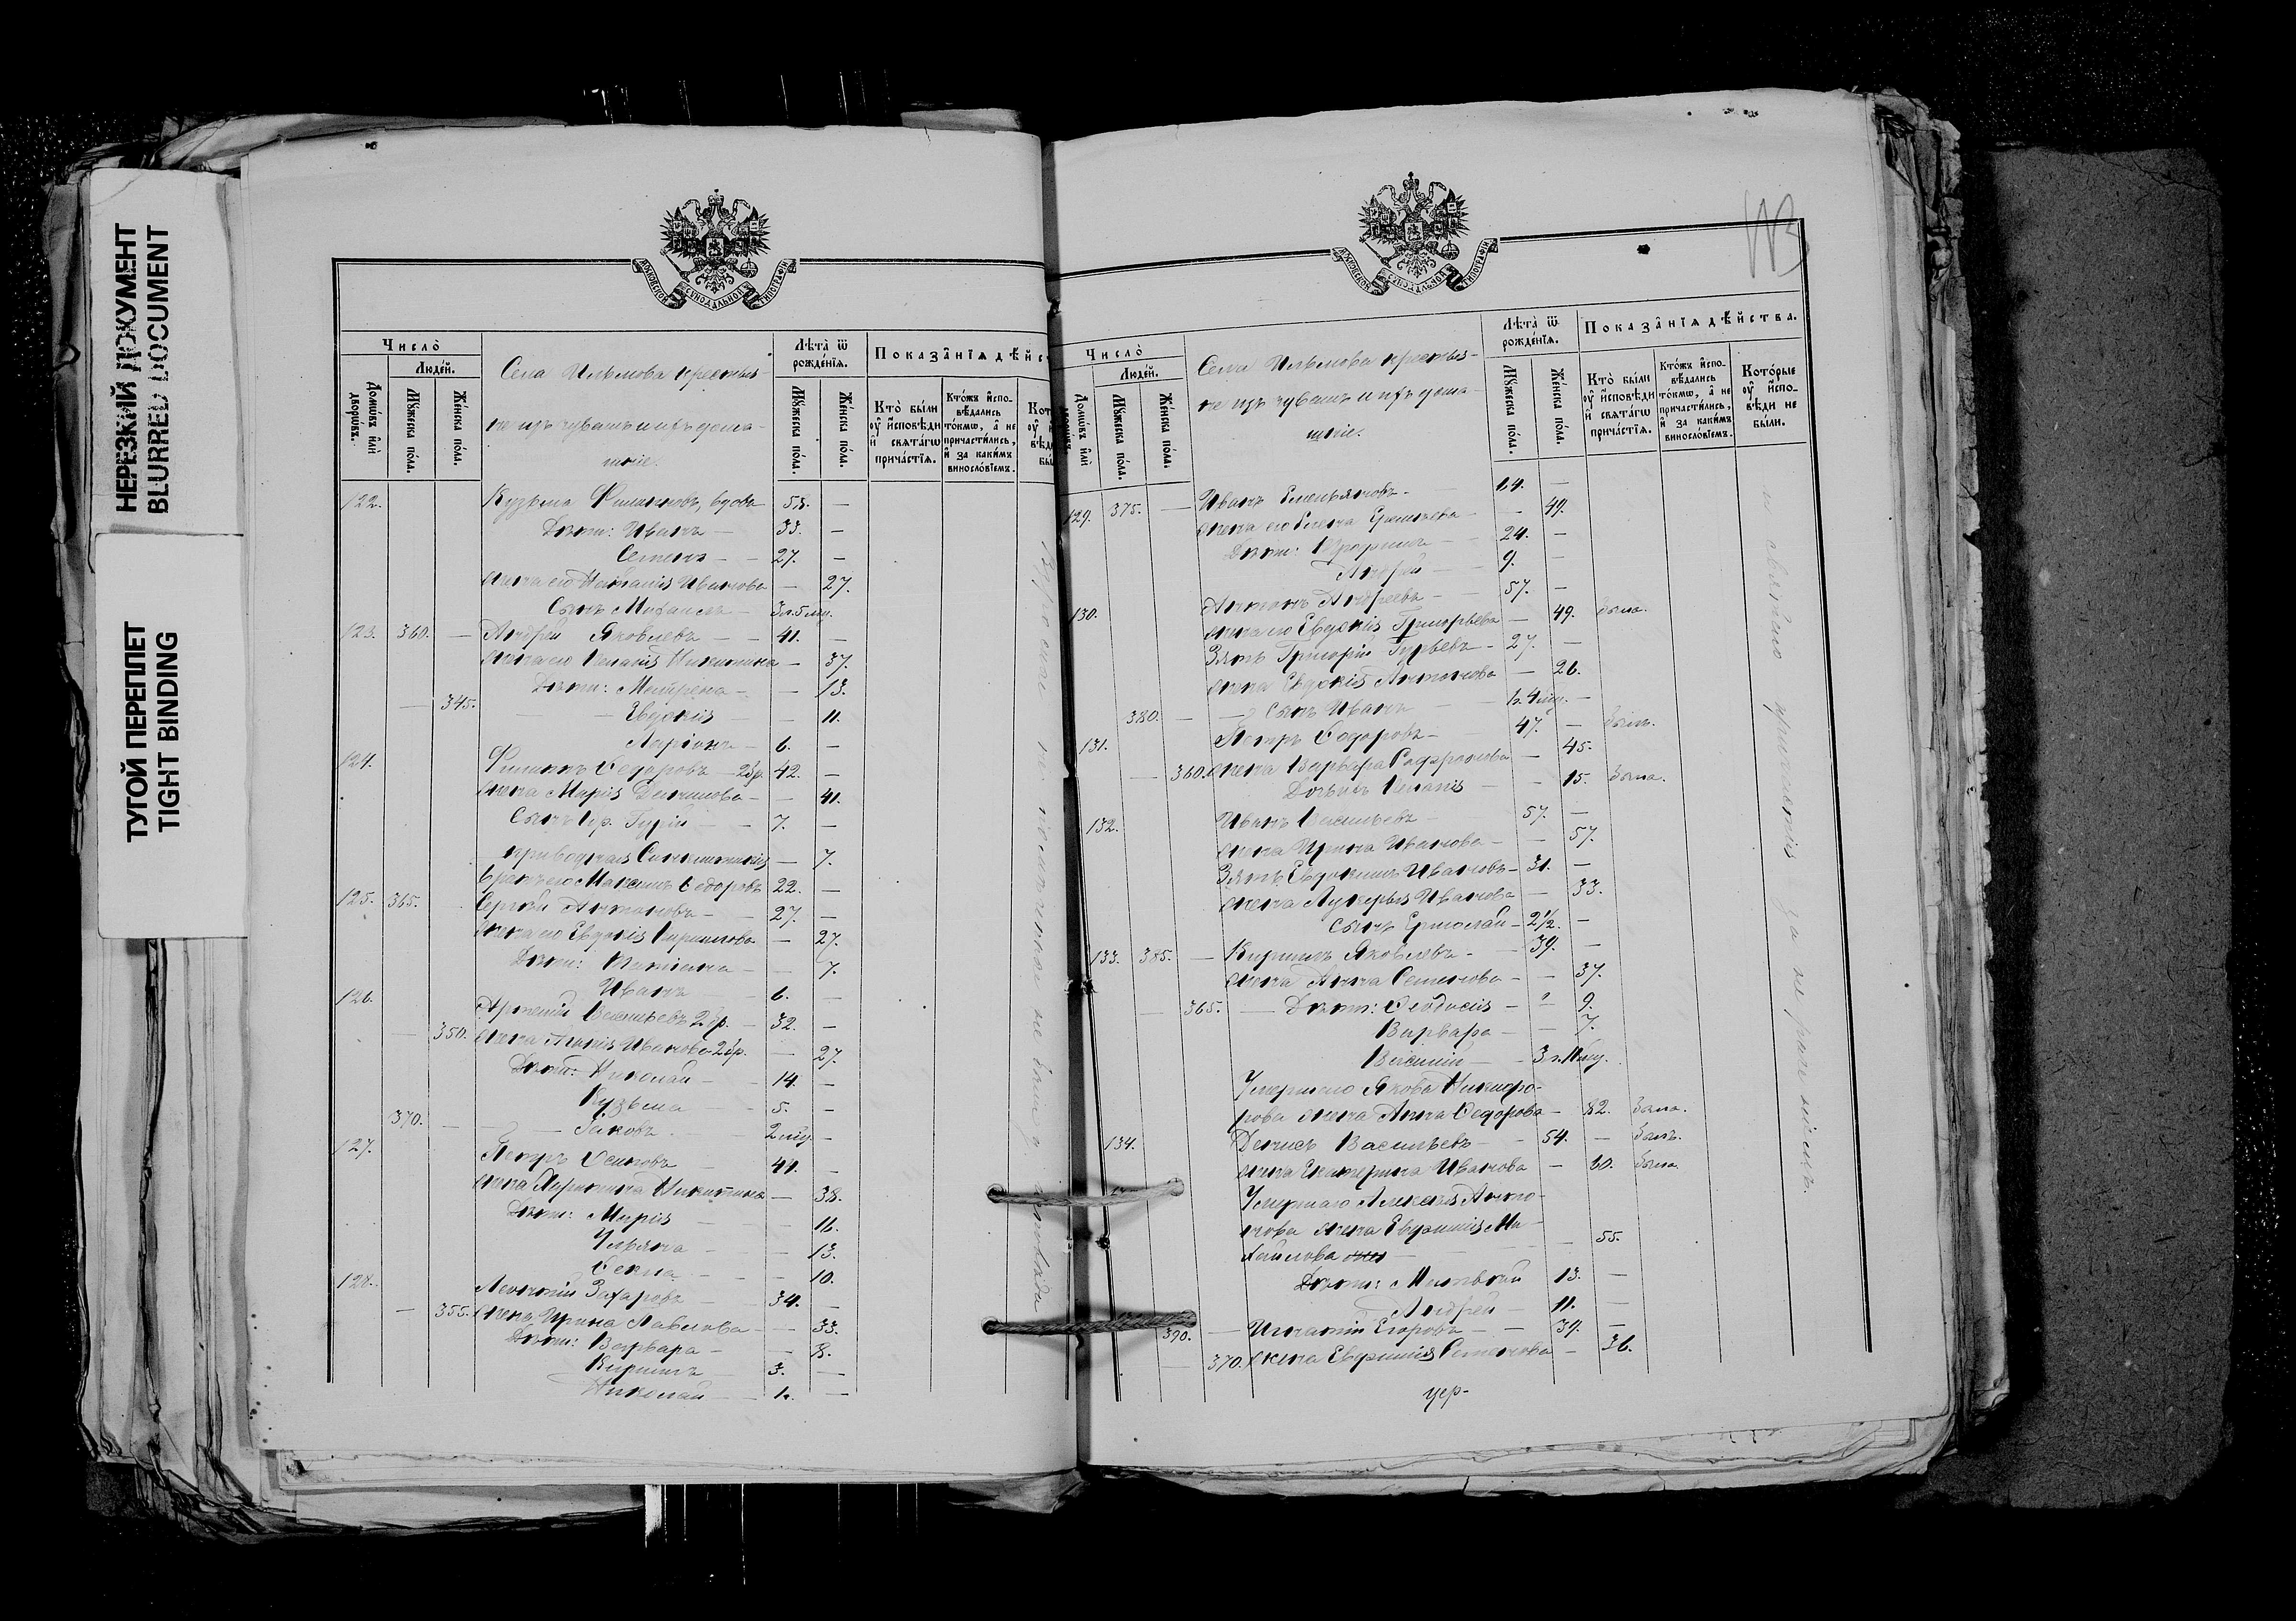 НЕРЕЗКИЙ ДОКУМЕНТ
BLURRED DOCUMENT
ТУГОЙ ПЕРЕПЛЕТ
TIGHT BINDING
МОСКОВСКОЙ СѴНОДАЛЬНОЙ ТИПОГРАФІИ
Число̀
Люде́й.
Домѡ́въ и҆лѝ дворѡ́въ.
Мꙋ́жеска по́ла.
Же́нска по́ла.
Села Ильмова крестья-
не изъ чувашъ и ихъ дома-
шніе.
Лѣ́та ѿ рожде́нїѧ.
Мꙋ́жеска по́ла.
Же́нска по́ла.
Показа̑нїѧ дѣ́йст
Кто̀ бы́ли ᲂу҆ и҆сповѣ́ди и҆ свѧта́гѡ прича́стїѧ.
Кто́жъ и҆сповѣ́дались то́кмѡ, а҆ не причасти́лись, и҆ за каки́мъ виносло́вїемъ.
122. Кузьма Филиповъ, вдовъ 53. —
Дѣти: Иванъ — 33. —
Семенъ — 27. —
жена его Наталія Иванова — 27.
Сынъ Михаилъ — 3 г. 5 мц.
123. 360. — Андрей Яковлевъ — 41. —
жена его Пелагія Никитина — 37.
Дѣти: Матрена — — 13.
— 345. — Евдокія — 11.
Ларіонъ — 6. —
124. Филиппъ Ѳедоровъ — 2 бр. 42. —
жена Марія Данилова — — 41.
Сынъ 1 бр. Гурій — 7. —
приводная — 7.
братъ его Максимъ Ѳедоровъ 22. —
125. 365. Сергѣй Антоновъ — 27. —
жена его Евдокія Кирилова — 27.
Дѣти: Татіана — — 7.
Иванъ — 6. —
126. Артемій Васильевъ 2 бр. — 32. —
— 350. жена Агафія Иванова 2 бр. — 27.
Дѣти: Николай — 14. —
Кузьма — 5. —
370. — Іаковъ — 2 мц. —
127. Петръ Осиповъ 41. —
жена Марина Никитина — 38.
Дѣти: Марія — — 16.
Ульяна — — 13.
Ѳекла — — 10.
128. Леонтій Захаровъ — 34. —
— 355. жена Ирина Павлова — — 33.
Дѣти: Варвара — — 8.
Кирилъ — 3. —
Николай — 1. —
Число̀
Люде́й.
Домѡ́въ и҆лѝ
Мꙋ́жеска по́ла.
Же́нска по́ла.
Села Ильмова крестья-
не изъ чувашъ и ихъ дома-
шніе.
Лѣ́та ѿ рожде́нїѧ.
Мꙋ́жеска по́ла.
Же́нска по́ла.
Показа̑нїѧ дѣ́йства.
Кто̀ бы́ли ᲂу҆ и҆сповѣ́ди и҆ свѧта́гѡ прича́стїѧ.
Кто́жъ и҆сповѣ́дались то́кмѡ, а҆ не причасти́лись, и҆ за каки́мъ виносло́вїемъ.
Кото́рые ᲂу҆ и҆сповѣ́ди не бы́ли.
129. 375. — Иванъ Емельяновъ — 64. —
жена его Елена — 49.
Дѣти: Трофимъ — 24. —
Андрей — 9. —
130. Антонъ Андреевъ — 57. —
жена его Евдокія Григорьева — 49. была.
Зять Григорій Гурьевъ — 27. —
жена Евдокія Антонова — 26.
380. — Сынъ Иванъ — 1 г. 4 мц. —
131. Петръ Ѳедоровъ — 47. — былъ.
— 360. жена Варвара Сафронова — 45.
Дочь Пелагія — 15. была.
132. Иванъ Васильевъ — 57. —
жена Ирина Иванова — — 57.
Зять Евдокимъ Ивановъ — 31. —
жена Лукерья Иванова — 33.
сынъ Ермолай — 2 1/2. —
133. 385. — Кирилъ Яковлевъ — 39. —
жена Анна Семенова — — 37.
— 365. — Дѣти: Ѳеодосія — 9.
Варвара — — 7.
Василій — 3 г. 11 мц.
Умершаго Якова Никифо-
рова жена Анна Ѳедорова — 82. была.
134. Денисъ Васильевъ — 54. — былъ.
жена Екатерина Иванова — 60. была.
Умершаго Алексѣя Анто-
нова жена Евфимія Ми-
хайлова — 55.
Дѣти: Матвѣй 13. —
Андрей — 11. —
390. — Игнатій Егоровъ — 39. —
— 370. жена Евфимія Семенова — 36.
цер-